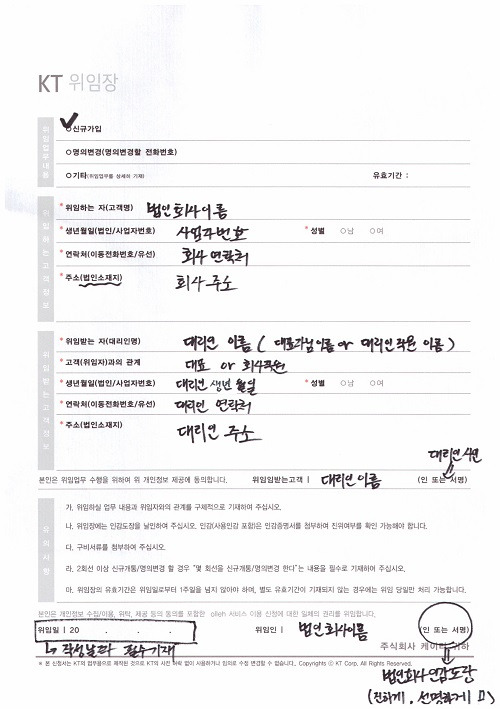 KT 위임장
위임업무내용
○신규가입
○명의변경(명의변경할 전화번호)
○기타(위임업무를 상세히 기재) 유효기간 :
위임하는고객정보
*위임하는 자(고객명) 법인회사이름
*생년월일(법인/사업자번호) 사업자번호 *성별 ○남 ○여
*연락처(이동전화번호/유선) 회사 연락처
*주소(법인소재지) 회사 주소
위임받는고객정보
*위임받는 자(대리인명) 대리인 이름 ( 대표자님이름 or 대리인 직원 이름 )
*고객(위임자)과의 관계 대표 or 회사직원
*생년월일(법인/사업자번호) 대리인 생년월일 *성별 ○남 ○여
*연락처(이동전화번호/유선) 대리인 연락처
*주소(법인소재지) 대리인 주소
대리인 사인
본인은 위임업무 수행을 위하여 위 개인정보 제공에 동의합니다. 위임임받는고객 | 대리인이름 (인 또는 서명)
유의사항
가. 위임하실 업무 내용과 위임자와의 관계를 구체적으로 기재하여 주십시오.
나. 위임장에는 인감도장을 날인하여 주십시오. 인감(사용인감 포함)은 인감증명서를 첨부하여 진위여부를 확인 가능해야 합니다.
다. 구비서류를 첨부하여 주십시오.
라. 2회선 이상 신규개통/명의변경 할 경우 "몇 회선을 신규개통/명의변경 한다"는 내용을 필수로 기재하여 주십시오.
마. 위임장의 유효기간은 위임일로부터 1주일을 넘지 않아야 하며, 별도 유효기간이 기재되지 않는 경우에는 위임 당일만 처리 가능합니다.
본인은 개인정보 수집/이용, 위탁, 제공 등의 동의를 포함한 olleh 서비스 이용 신청에 대한 일체의 권리를 위임합니다.
위임일 | 20 . . . 위임인 | 법인회사이름 (인 또는 서명)
↳ 작성날짜 필수기재 주식회사 케이티 귀하
* 본 신청서는 KT의 업무용으로 제작된 것으로 KT의 사전 허락 없이 사용하거나 임의로 수정 변경할 수 없습니다. Copyrights ⓒ KT Corp. All Rights Reserved.
법인회사인감도장
(진하게, 선명하게 !!)